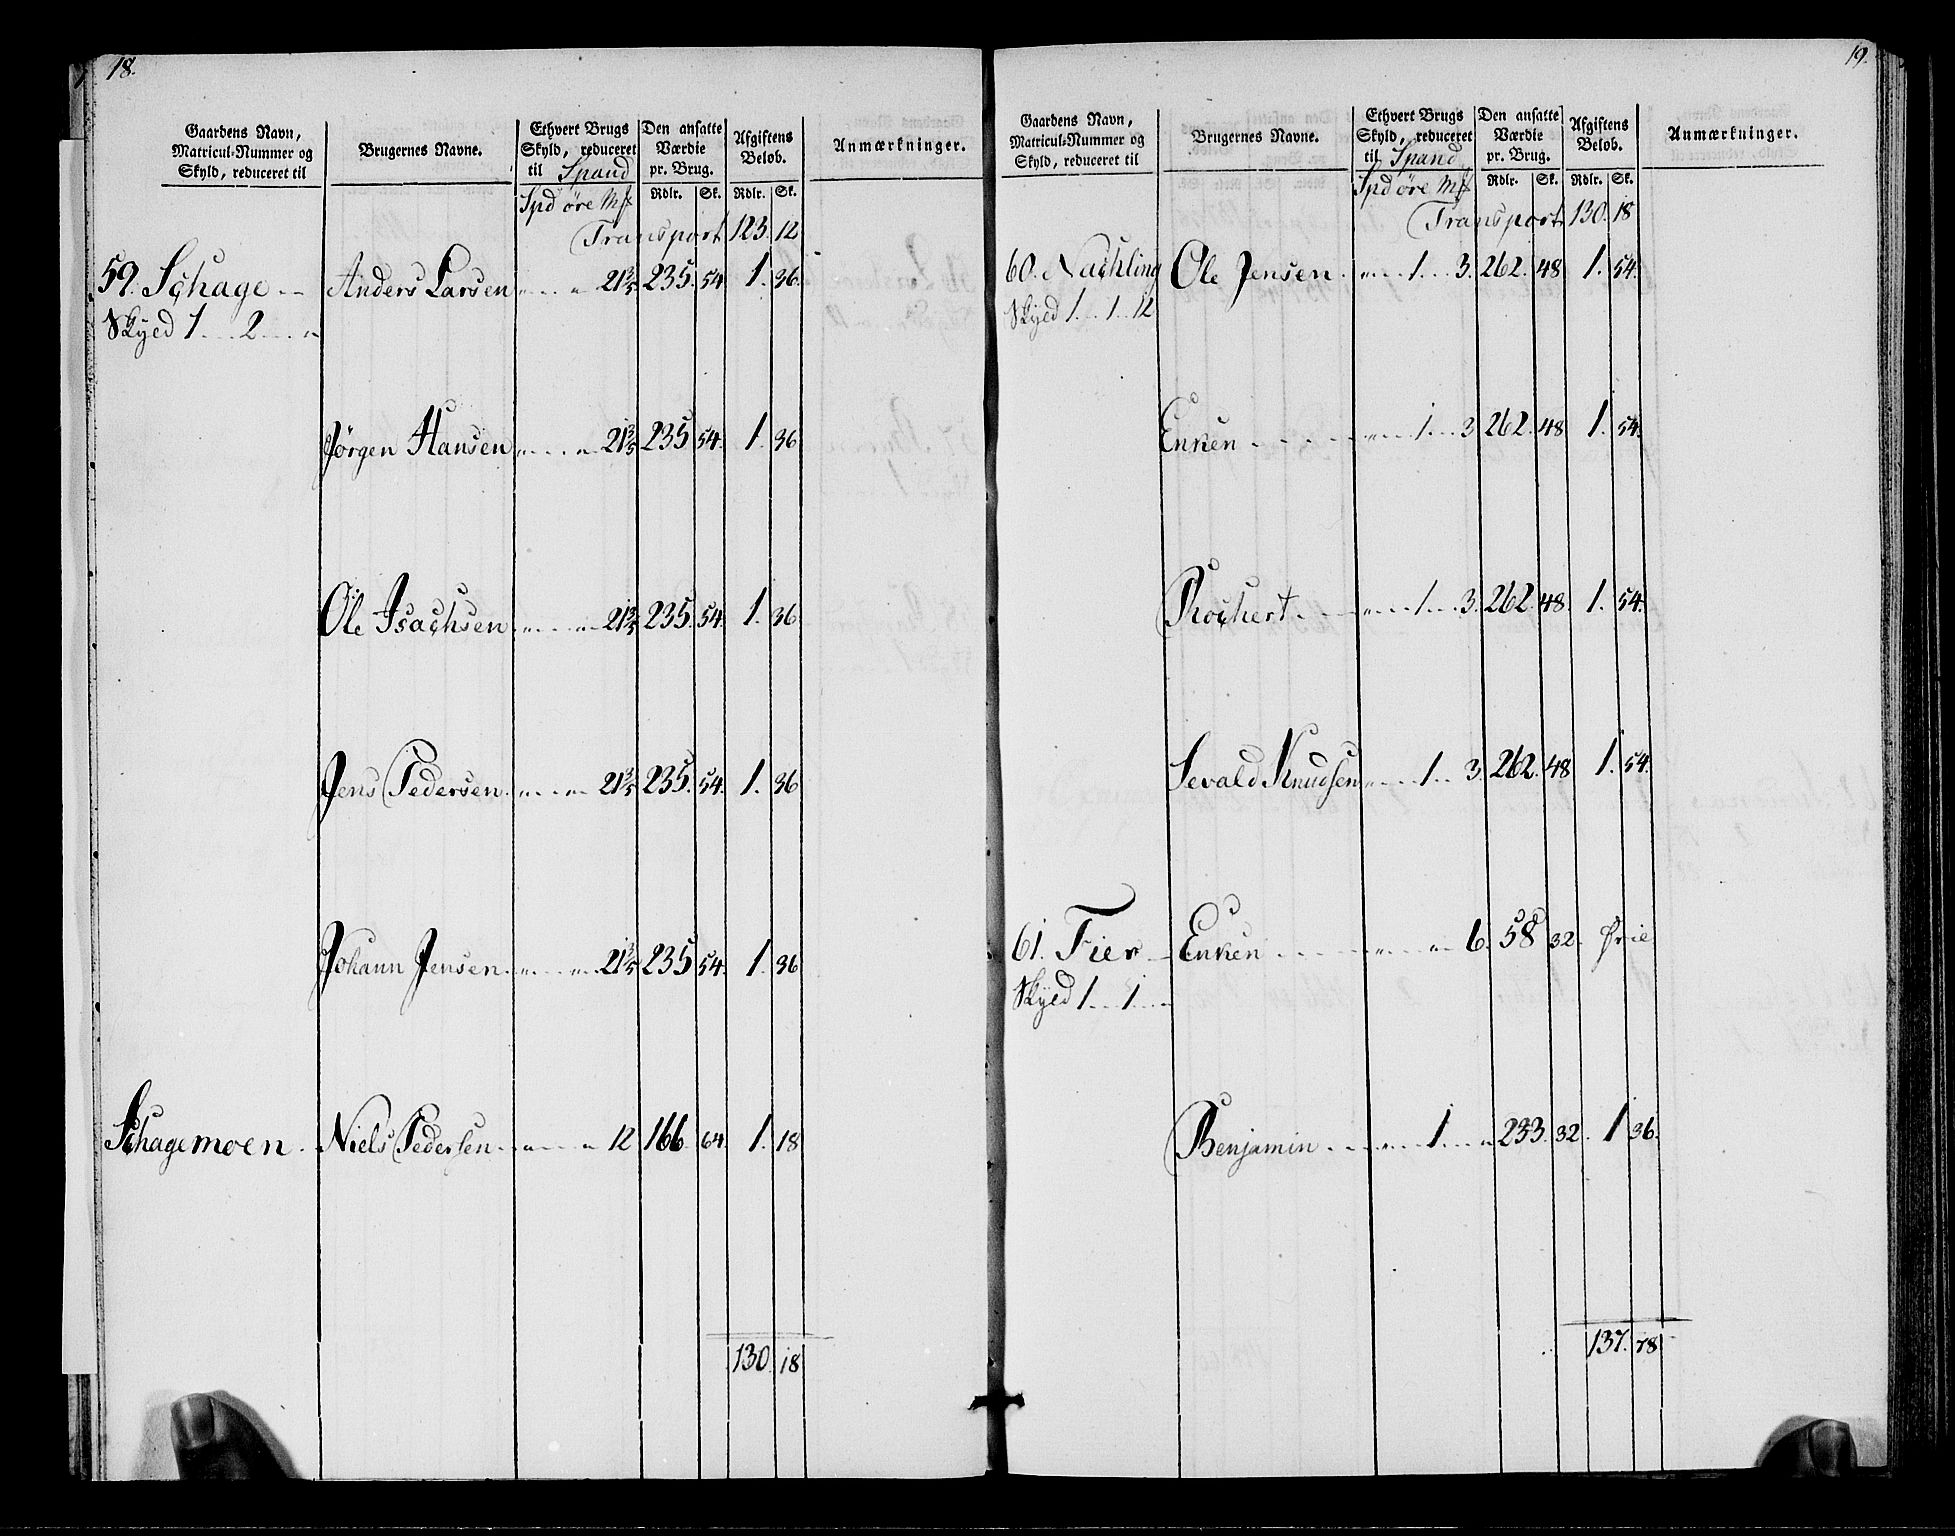 18.
Gaardens Navn, Matricul-Nummer og Skyld, reduceret til
Brugernes Navne.
Ethvert Brugs Skyld, reduceret til Spand
Den ansatte Værdie pr. Brug.
Afgiftens Beløb.
Anmærkninger.
Spd øre Mk Rdlr. Sk. Rdlr. Sk.
Transport 123. 12
59. Schage Anders Larsen " " 21 3/5 235. 54. 1. 36
Skyld 1 2 "
Jørgen Hansen " " 21 3/5 235 54. 1. 36
Ole Isachsen " " 21 3/5 235. 54. 1. 36
Jens Pedersen " " 21 3/5 235. 54. 1. 36
Johann Jensen " " 21 3/5 235 54. 1. 36
Schagemoen. Niels Pedersen " " 12 166. 64. 1. 18
130. 18
19.
Gaardens Navn, Matricul-Nummer og Skyld, reduceret til
Brugernes Navne.
Ethvert Brugs Skyld, reduceret til Spand
Den ansatte Værdie pr. Brug.
Afgiftens Beløb.
Anmærkninger.
Spd øre Mk Rdlr. Sk. Rdlr. Sk.
Transport 130. 18
60. Nachling Ole Jensen " 1 3. 262. 48 1. 54.
Skyld 1 1 12
Enken " 1 3 262. 48 1. 54.
Rochert " 1 3. 262. 48. 1. 54.
Sevald Knudsen " 1 3. 262. 48 1. 54.
61. Fier Enken " " 6. 58 32. Frie
Skyld 1 1 "
Benjamin " 1 " 233. 32. 1 36.
137. 78